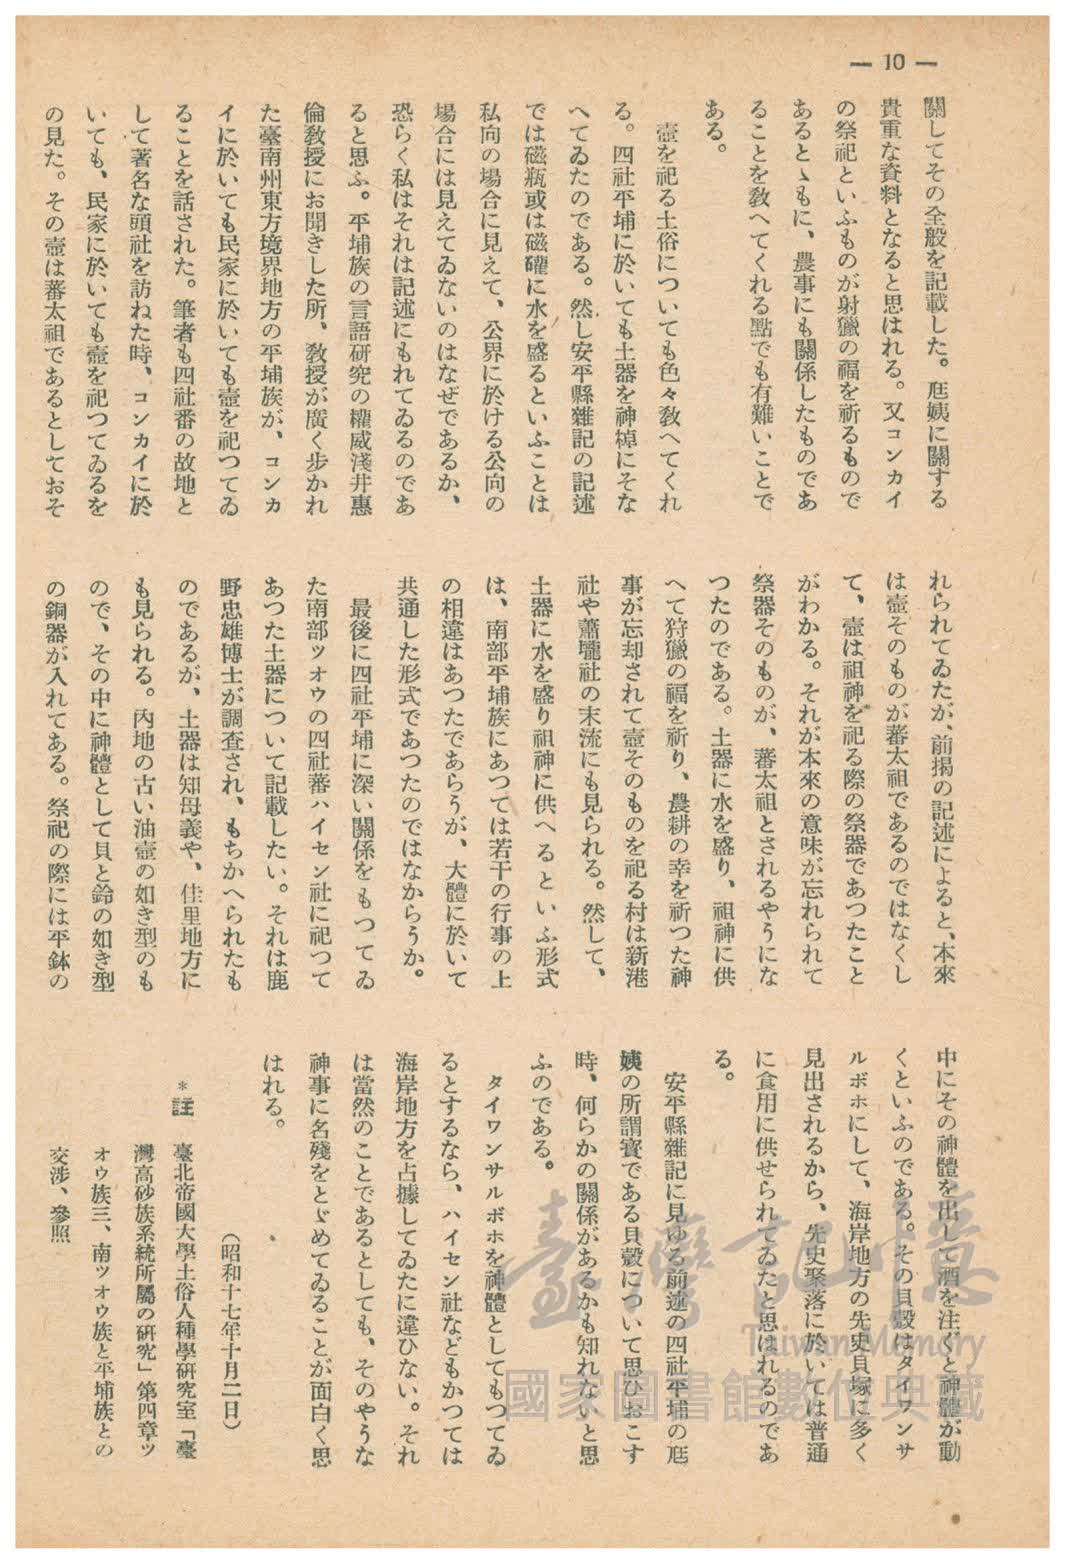 — 10 —
關してその全般を記載した。尪姨に關する
貴重な資料となると思はれる。又コンカイ
の祭祀といふものが射獵の福を祈るもので
あるとゝもに、農事にも關係したものであ
ることを教へてくれる點でも有難いことで
ある。
壺を祀る土俗についても色々教へてくれ
る。四社平埔に於いても土器を神棹にそな
へてゐたのである。然し安平縣雜記の記述
では磁瓶或は磁礶に水を盛るといふことは
私向の場合に見えて、公界に於ける公向の
場合には見えてゐないのはなぜであるか、
恐らく私はそれは記述にもれてゐるのであ
ると思ふ。平埔族の言語硏究の權威淺井惠
倫教授にお聞きした所、教授が廣く步かれ
た臺南州東方境界地方の平埔族が、コンカ
イに於いても民家に於いても壺を祀つてゐ
ることを話された。筆者も四社番の故地と
して著名な頭社を訪ねた時、コンカイに於
いても、民家に於いても壺を祀つてゐるを
の見た。その壺は蕃太祖であるとしておそ
れられてゐたが、前揭の記述によると、本來
は壺そのものが蕃太祖であるのではなくし
て、壺は祖神を祀る際の祭器であつたこと
がわかる。それが本來の意味が忘れられて
祭器そのものが、蕃太祖とされるやうにな
つたのである。土器に水を盛り、祖神に供
へて狩獵の福を祈り、農耕の幸を祈つた神
事が忘却されて壺そのものを祀る村は新港
社や蕭壠社の末流にも見られる。然して、
土器に水を盛り祖神に供へるといふ形式
は、南部平埔族にあつては若干の行事の上
の相違はあつたであらうが、大體に於いて
共通した形式であつたのではなからうか。
最後に四社平埔に深い關係をもつてゐ
た南部ツオウの四社蕃ハイセン社に祀つて
あつた土器について記載したい。それは鹿
野忠雄博士が調査され、もちかへられたも
のであるが、土器は知母義や、佳里地方に
も見られる。內地の古い油壺の如き型のも
ので、その中に神體として貝と鈴の如き型
の銅器が入れてある。祭祀の際には平鉢の
中にその神體を出して酒を注ぐと神體が動
くといふのである。その貝殼はタイワンサ
ルボホにして、海岸地方の先史貝塚に多く
見出されるから、先史聚落に於いては普通
に食用に供せられてゐたと思はれるのであ
る。
安平縣雜記に見ゆる前述の四社平埔の尪
姨の所謂寳である貝殼について思ひおこす
時、何らかの關係があるかも知れないと思
ふのである。
タイワンサルボホを神體としてもつてゐ
るとするなら、ハイセン社などもかつては
海岸地方を占據してゐたに違ひない。それ
は當然のことであるとしても、そのやうな
神事に名殘をとゞめてゐることが面白く思
はれる。
（昭和十七年十月二日）
＊註 臺北帝國大學土俗人種學硏究室「臺
灣高砂族系統所屬の硏究」第四章ツ
オウ族三、南ツオウ族と平埔族との
交涉、參照
臺灣記憶
Taiwan Memory
國家圖書館數位典藏